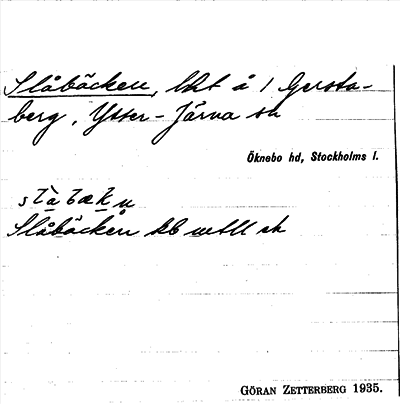 Slåbäcken, lht å 1 Gersta-
berg, Ytter-Järna sn
Öknebo hd, Stockholms l.
Slåbäcken
GÖRAN ZETTERBERG 1935.